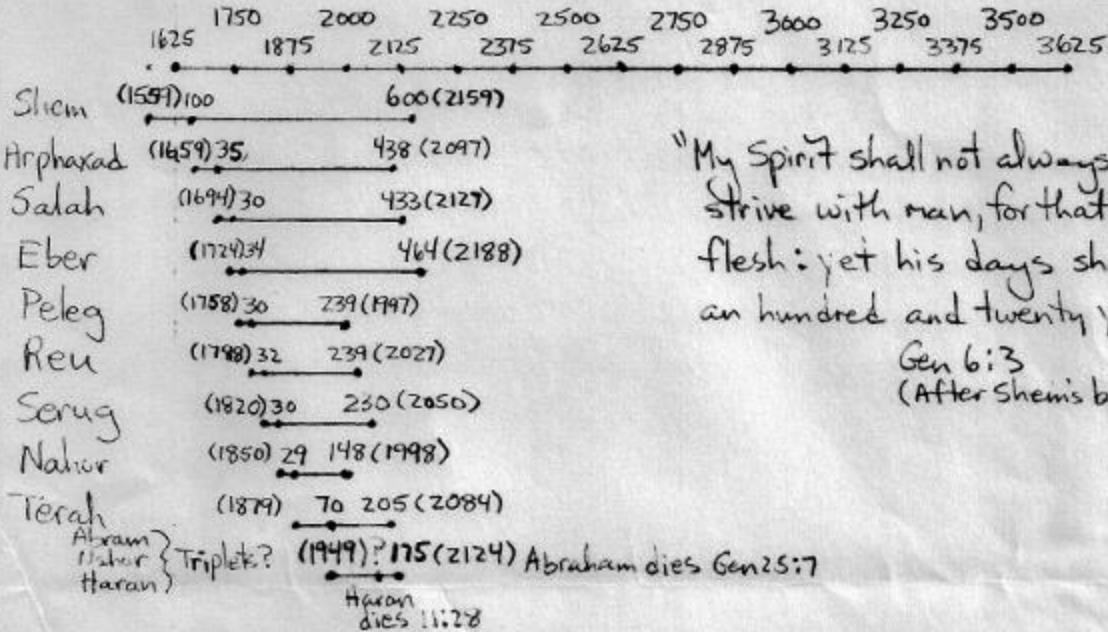 1750 2000 2250 2500 2750 3000 3250 3500
1625 1875 2125 2375 2625 2875 3125 3375 3625
Shem (1559) 100 600 (2159)
Arphaxad (1659) 35, 438 (2097)
Salah (1694) 30 433 (2127)
Eber (1724) 34 464 (2188)
Peleg (1758) 30 239 (1997)
Reu (1788) 32 239 (2027)
Serug (1820) 30 230 (2050)
Nahor (1850) 29 148 (1998)
Terah (1879) 70 205 (2084)
Abram
Nahor
Haran
Triplets? (1949) ? 175 (2124) Abraham dies Gen 25:7
Haran
dies 11:28
"My Spirit shall not always
strive with man, for that
flesh: yet his days sh
an hundred and twenty y
Gen 6:3
(After Shem's b